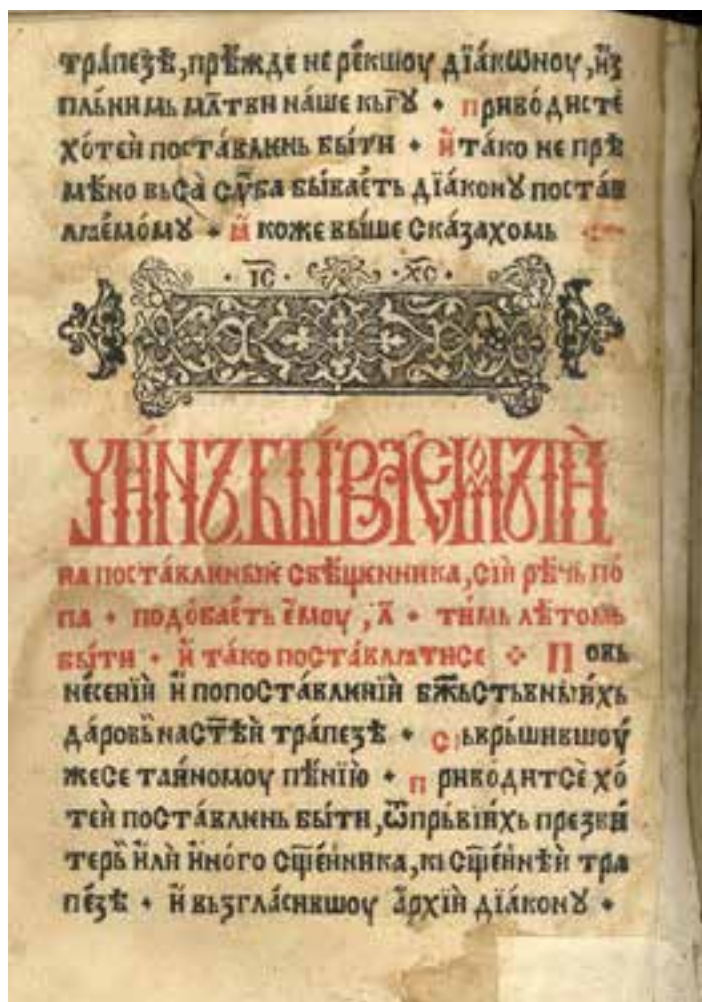 тра́пезѣ, прѣ́жде не ре́кшоу дїа́кѡноу, и҆з
пль́нимь мл҃тви на́ше кь гꙋ҃ · приво́дисте
хо́теи поста́влѥнь бы́ти · и҆ та́ко не прѣ
мѣ́но вьса̀ слꙋ́ба быва́еть дїа́конꙋ поста́в
лꙗѥ́мо́мꙋ · ꙗ҆́ коже вы́ше ска́захомь
· І҃С · · Х҃С ·
ЧИ́НЪ БЫ́ВАЕМЫЍ
на поста́влѥнїи свѣщеника, сїи рѣ́чь по́
па · подо́баеть ѥ҆моу, л҃ · тимь лѣ́томь
бы́ти · и҆ та́ко поста́влꙗтисе ⁘ Повь
не́сенїй и҆ попоста́вленїй бж҃ьствьны́ихь
да́ровь на ст҃ѣй тра́пезѣ · сьврь́шившоу́
жесе та́иномоу пѣ́нїю · приво́дитсѐ хо́
теи поста́влѥнь бы́ти, ѿ прь́вїихь презви́
терь и҆лѝ и҆но́го сщ҃е́нника, кь сщ҃е́ннѣй тра
пе́зѣ · и҆ вьзгла́сившоу а҆рхїи дїа́конꙋ ·